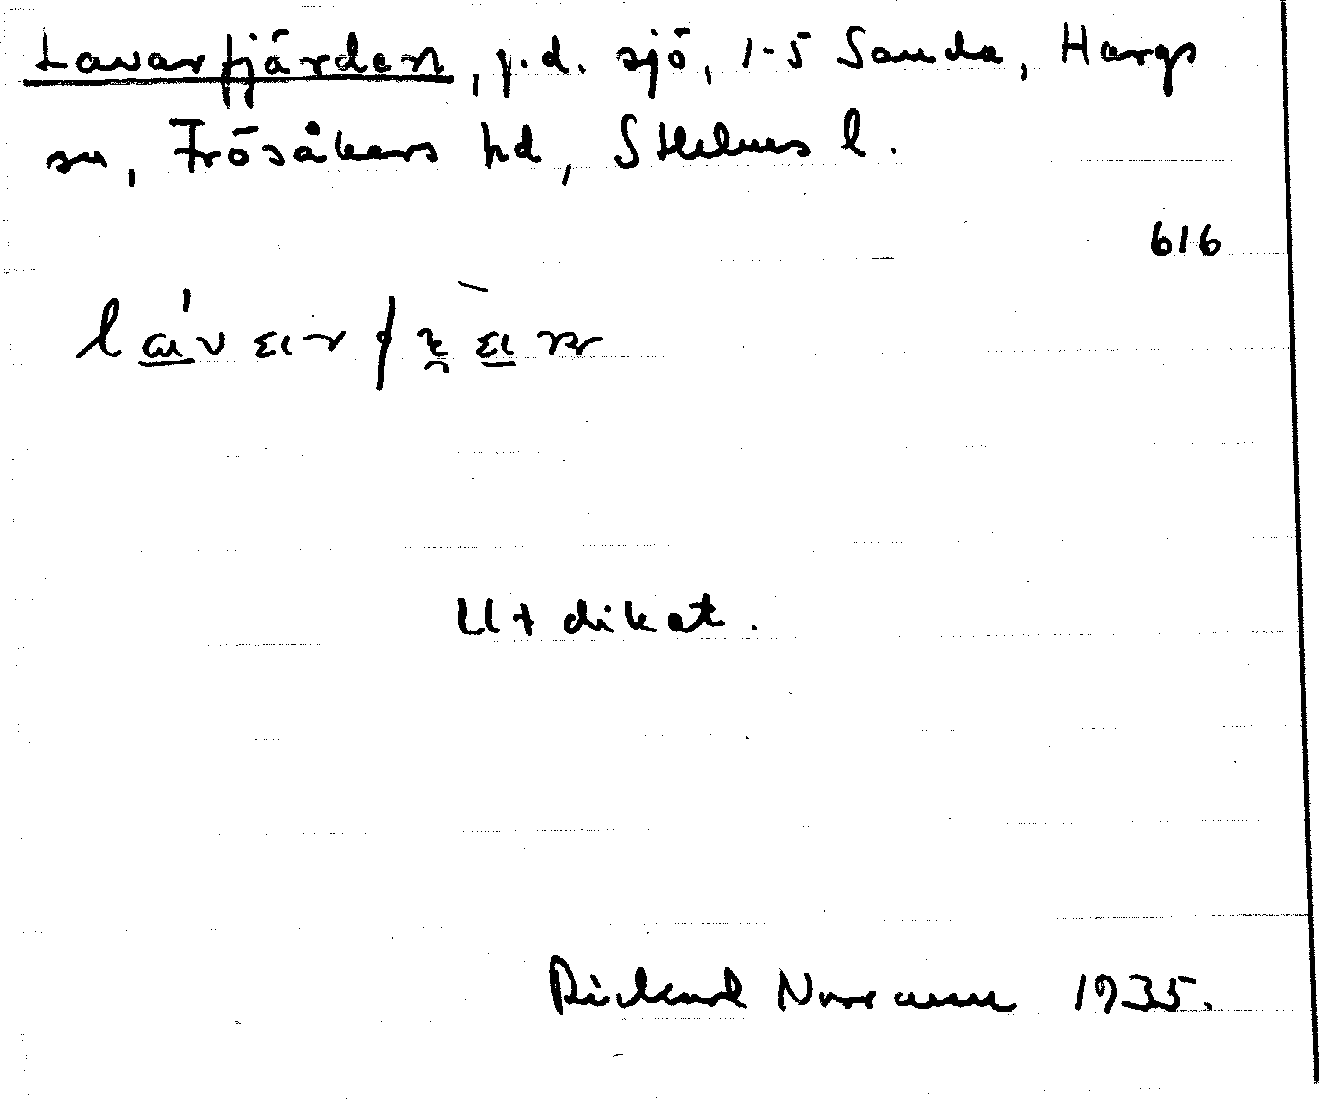 Lavarfjärden, f.d. sjö, 1-5 Sanda, Hargs
sn, Frösåkers hd, Sthlms l.
616
Utdikat.
Rickard Norrman 1935.